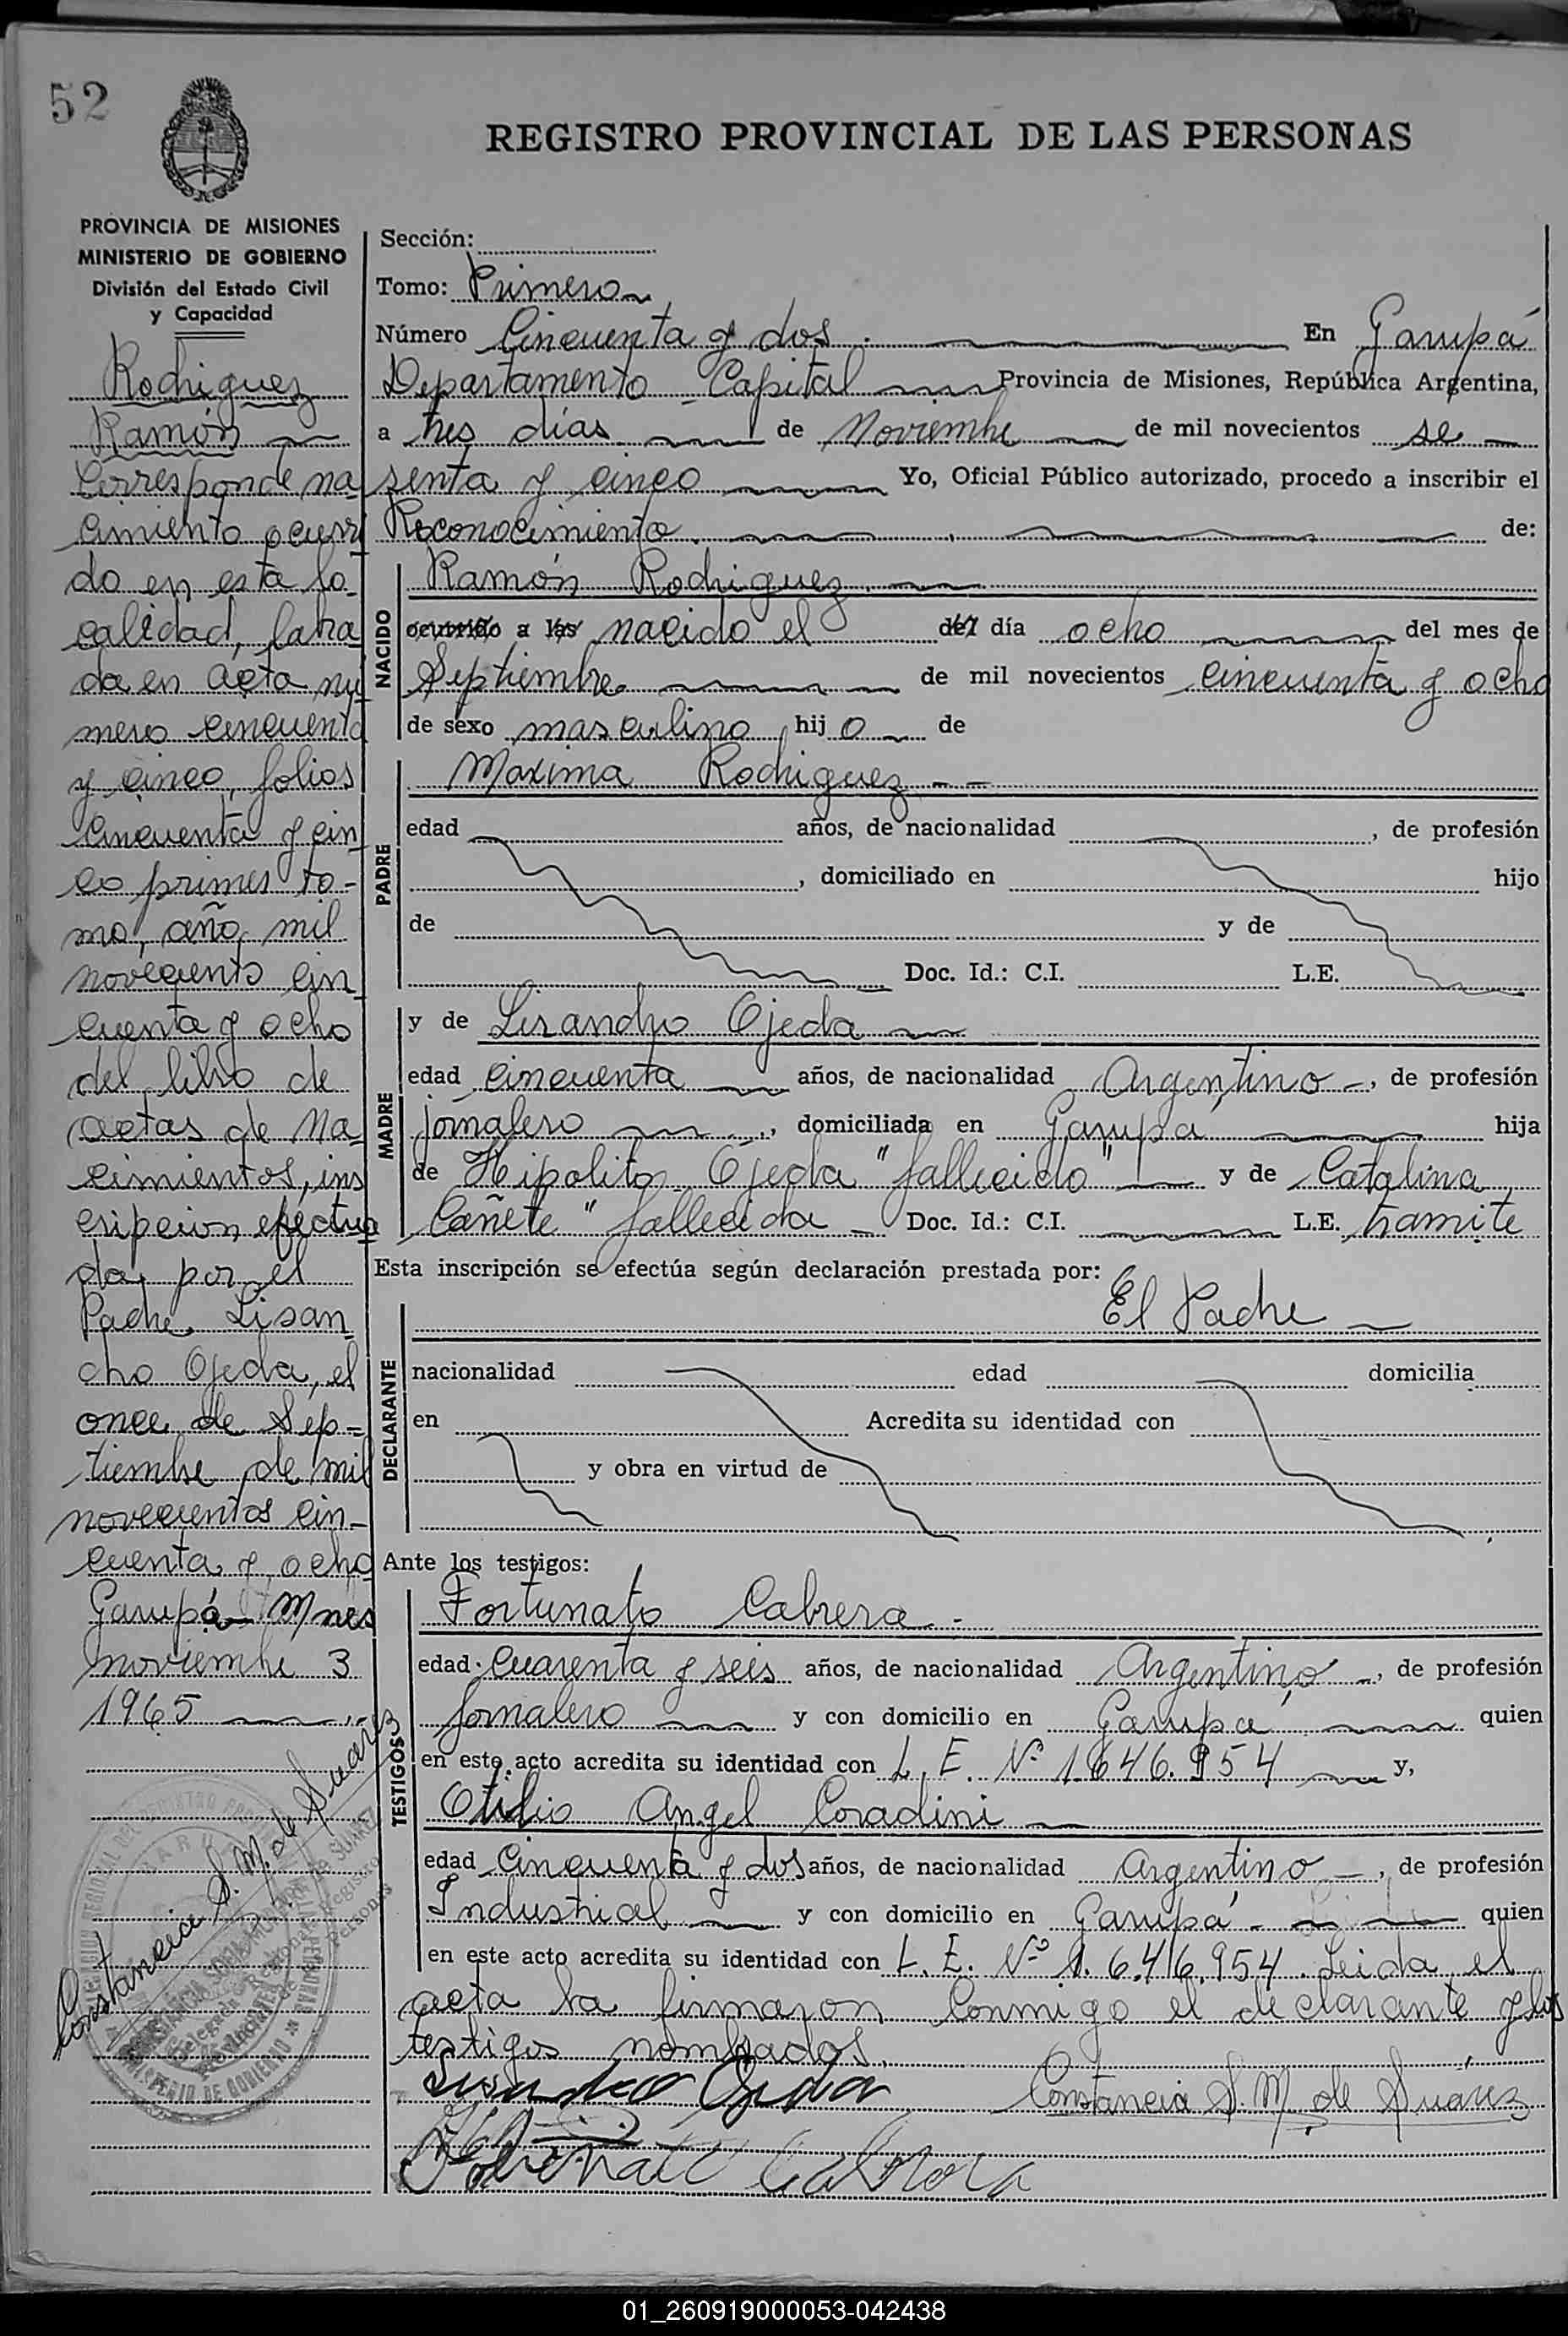 52
REGISTRO PROVINCIAL DE LAS PERSONAS
PROVINCIA DE MISIONES
MINISTERIO DE GOBIERNO
División del Estado Civil
y Capacidad
Rodriguez
Ramón
Corresponde na
cimiento ocurri
do en esta lo-
calidad, labra
da en acta nú
mero cincuenta
y cinco, folios
cincuenta y cin
co primer to-
mo, año mil
novecientos cin
cuenta y ocho
del libro de
actas de na-
cimientos, ins
cripcion efectua
da, por el
Padre Lisan
dro Ojeda, el
once de Sep-
tiembre de mil
novecientos cin-
cuenta y ocho
Garupá Mnes
noviembre 3
1965
Constancia S. M. de Suarez
Sección:
Tomo: Primero
Número Cincuenta y dos. En Garupá
Departamento Capital Provincia de Misiones, República Argentina,
a tres días de Noviembre de mil novecientos se
senta y cinco Yo, Oficial Público autorizado, procedo a inscribir el
Reconocimiento de:
NACIDO
Ramón Rodriguez
ocurrido a las nacido el del día ocho del mes de
Septiembre de mil novecientos cincuenta y ocho
de sexo masculino hijo de
PADRE
Maxima Rodriguez
edad años, de nacionalidad , de profesión
, domiciliado en hijo
de y de
Doc. Id.: C.I. L.E.
MADRE
y de Lisandro Ojeda
edad cincuenta años, de nacionalidad Argentino, de profesión
jornalero, domiciliada en Garupá hija
de Hipolito Ojeda "fallecido" y de Catalina
Cañete "fallecida Doc. Id.: C.I. L.E. tramite
Esta inscripción se efectúa según declaración prestada por:
DECLARANTE
El Padre
nacionalidad edad domicilia
en Acredita su identidad con
y obra en virtud de
Ante los testigos:
TESTIGOS
Fortunato Cabrera
edad cuarenta y seis años, de nacionalidad Argentino, de profesión
jornalero y con domicilio en Garupá quien
en este acto acredita su identidad con L. E. Nº 1.646.954 y,
Otilio Angel Coradini
edad cincuenta y dos años, de nacionalidad Argentino, de profesión
Industrial y con domicilio en Garupá quien
en este acto acredita su identidad con L. E. Nº 1.646.954. Leida el
acta la firmaron conmigo el declarante y los
testigos nombrados.
Lisandro Ojeda
Constancia S. M. de Suárez
Fortunato Cabrera
01_260919000053-042438